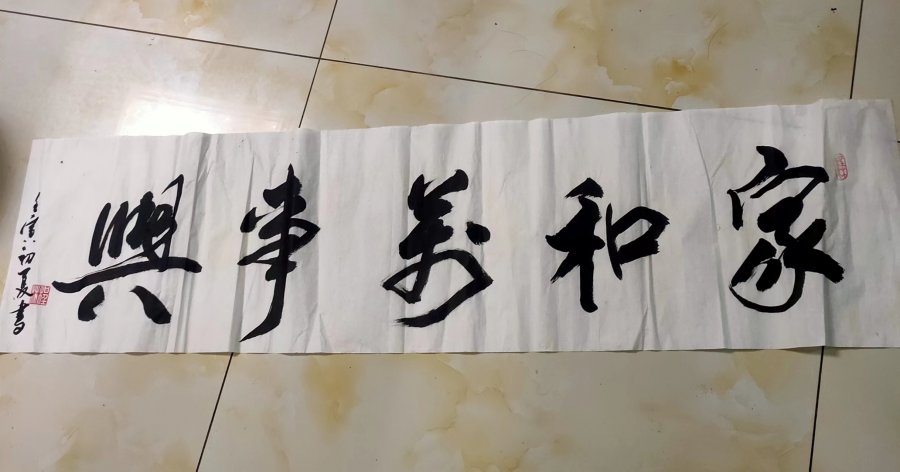 家和萬事興
壬寅初夏書